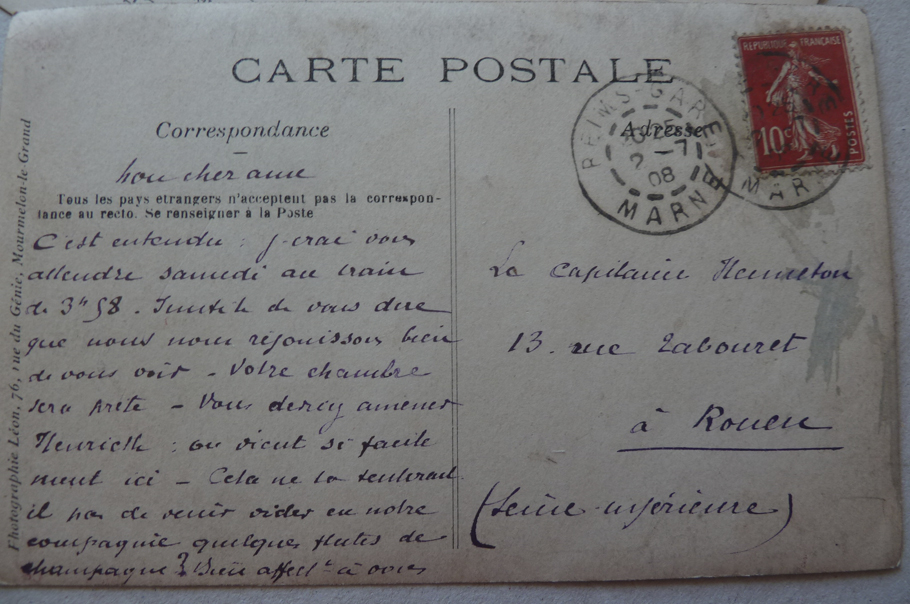 CARTE POSTALE
Correspondance
Adresse
Mon cher ami
Tous les pays etrangers n'acceptent pas la correspon-
dance au recto. Se renseigner à la Poste
C'est entendu : j'irai vous
attendre samedi au train
de 3h58. Inutile de vous dire
que nous nous rejouissons bien
de vous voir - Votre chambre
sera prete - Vous devriez amener
: on vient si facile
ment ici - Cela ne le tenterait
il pas de venir vider en notre
compagnie quelques flutes de
champagne? Bien affectt à vous
Le Capitaine
13. rue Tabouret
à Rouen
(Seine-inférieure)
Photographie Léon, 76, rue du Génie, Mourmelon-le-Grand
REIMS-GARE
2 -7
08
MARNE
REPUBLIQUE FRANÇAISE
10c
POSTES
MAR